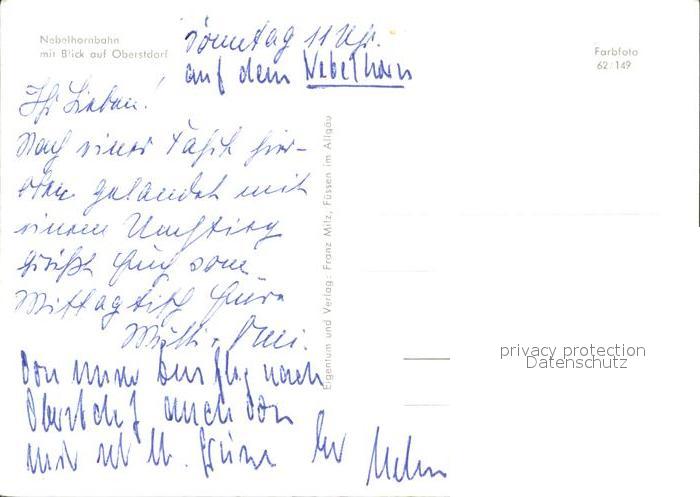 Nebelhornbahn
mit Blick auf Oberstdorf
Sonntag 11 Uhr.
auf dem Nebelhorn
Farbfoto
62/149
Ihr Lieben!
Nach einer Fahrt hier-
oben gelandet mit
einem Umstieg
grüßt Euch vom
Mittagstisch Eure
Mutti + Omi.
Von unser Ausflug nach
Oberstdorf auch von
mir
Eigentum und Verlag: Franz Milz, Füssen im Allgäu
privacy protection
Datenschutz